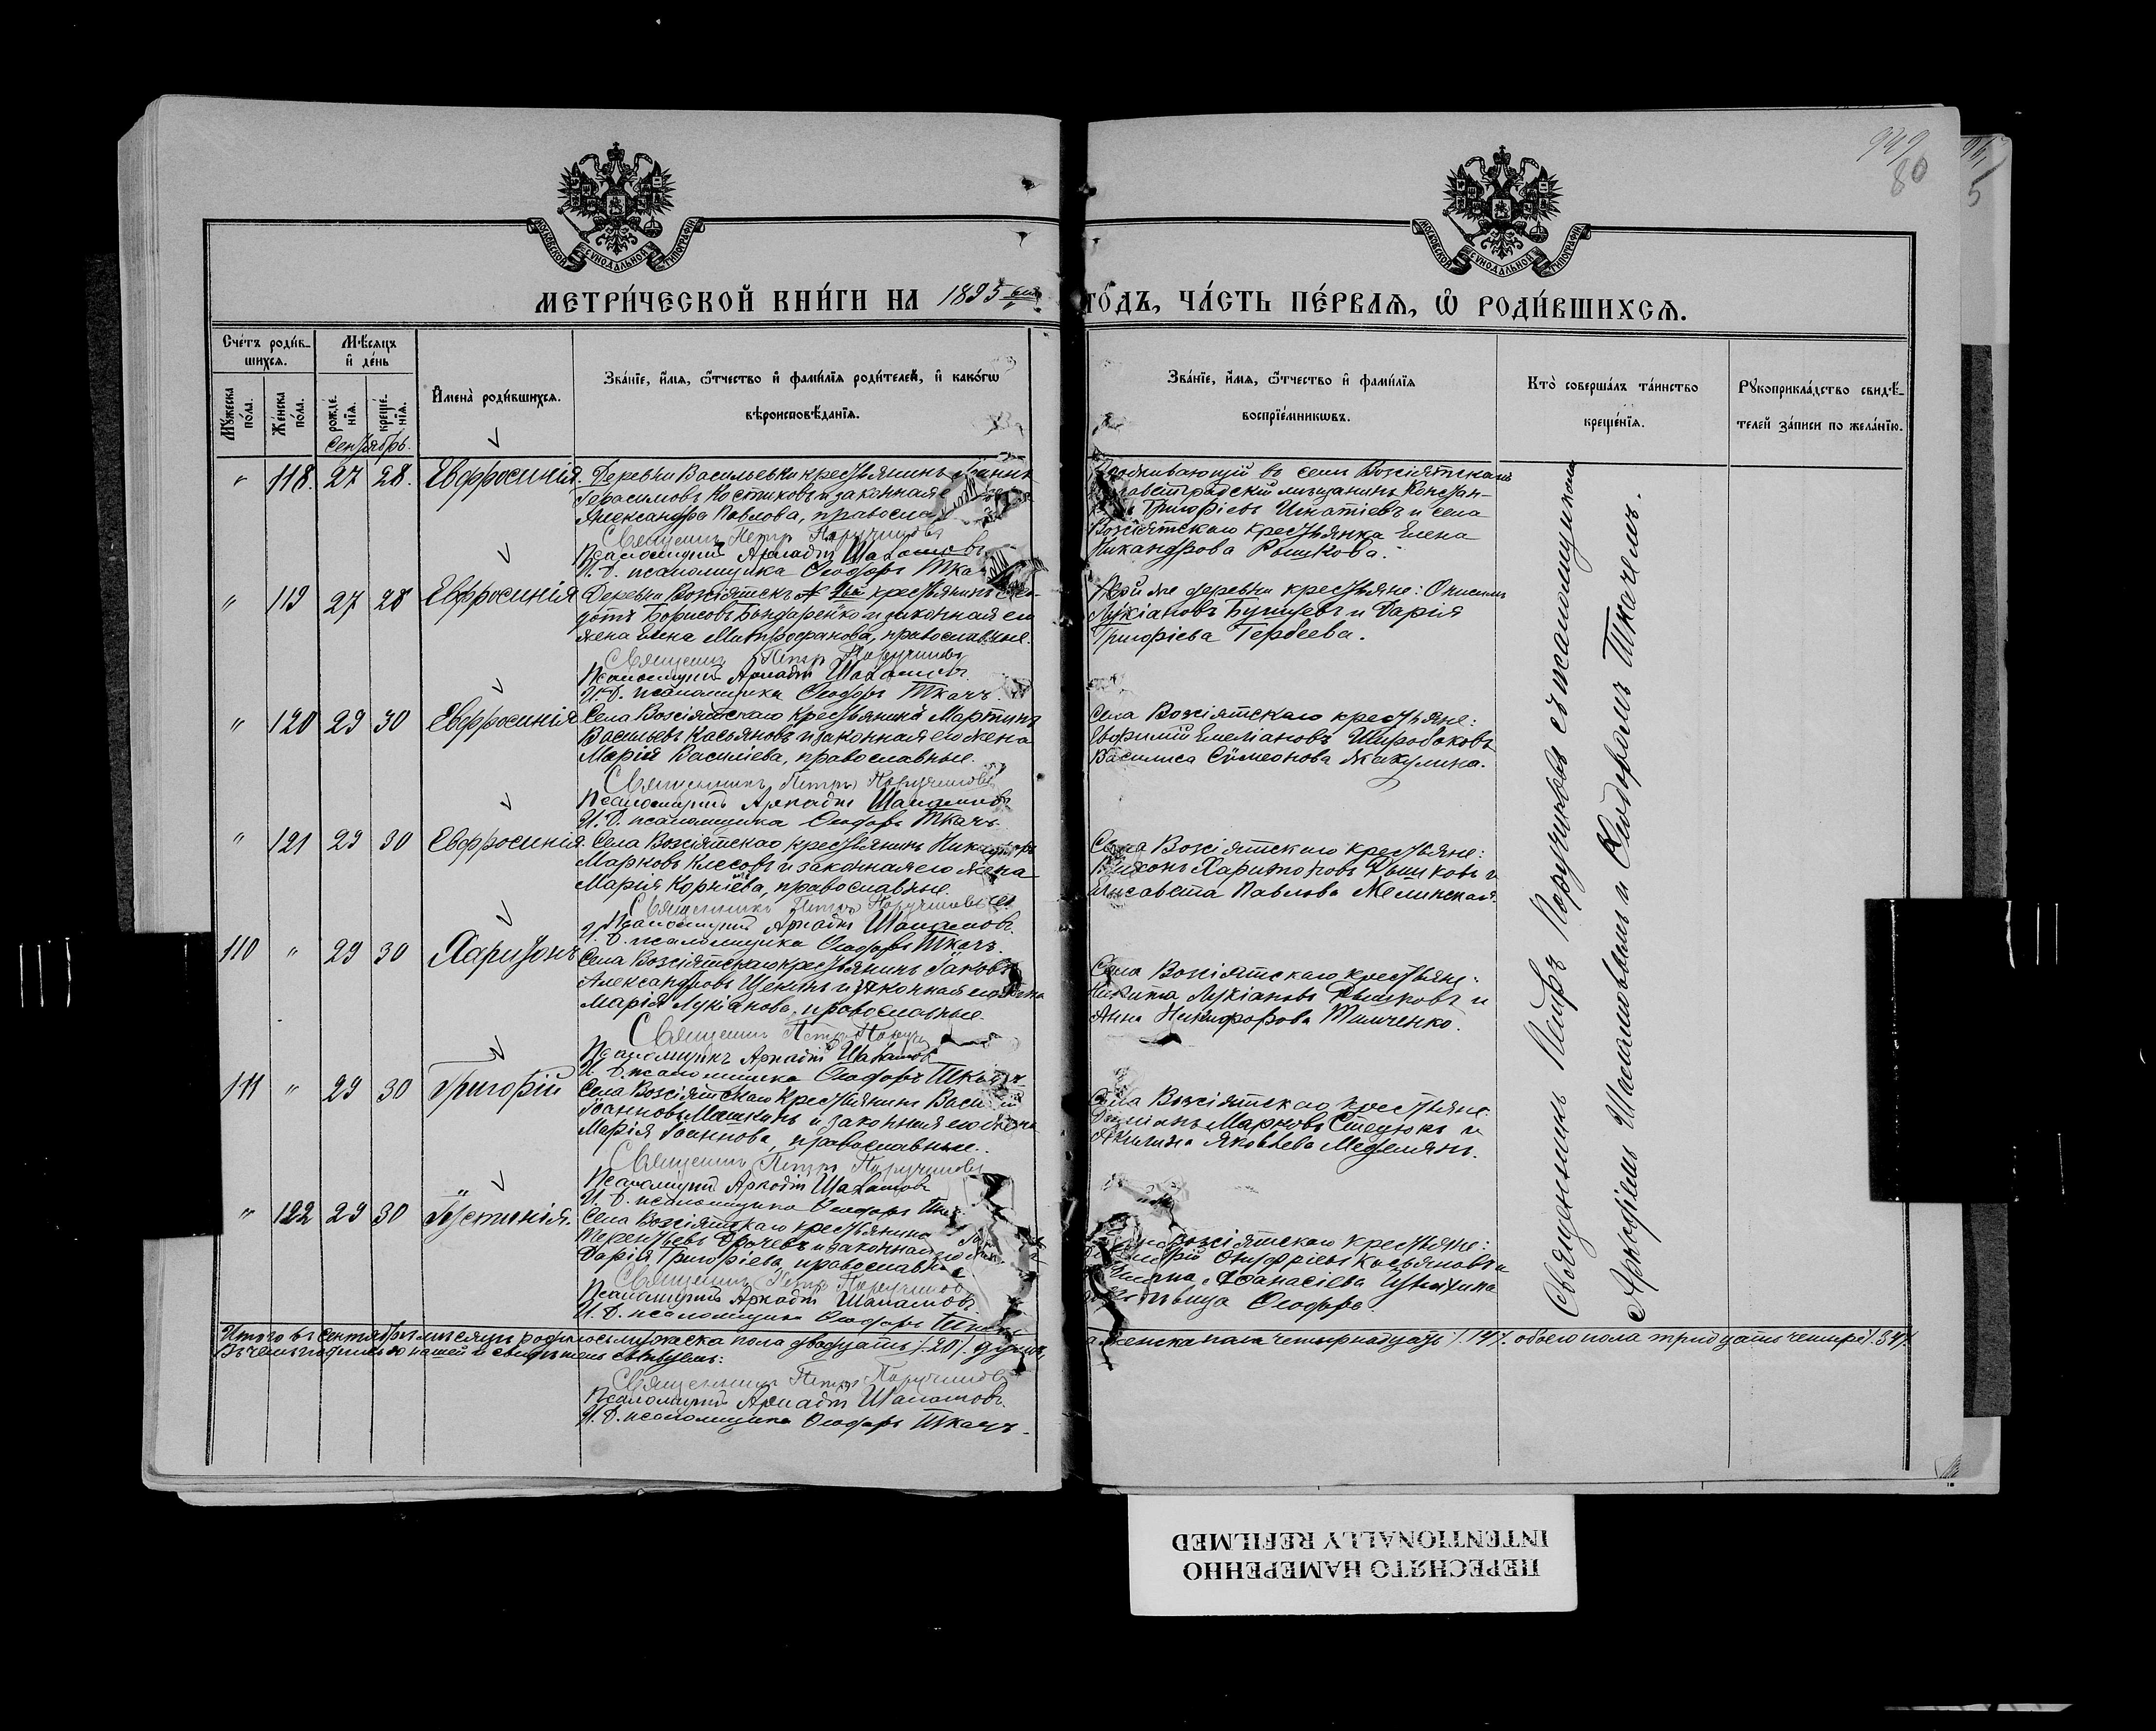 949
80
МОСКОВСКОЙ СУНОДАЛЬНОЙ ТИПОГРАФИИ
МОСКОВСКОЙ СУНОДАЛЬНОЙ ТИПОГРАФИИ
МЕТРИ́ЧЕСКОЙ КНИ́ГИ НА 1895 ГО́ДЪ, ЧА́СТЬ ПЕ́РВАЯ, Ѡ РОДИ́ВШИХСЯ.
Сче́тъ роди́в-
шихся.
Мѣсяцъ
и҆ де́нь
Мꙋжеска по́ла.
Же́нска по́ла.
рожде́нїя.
креще́нїя.
И҆мена̀ роди́вшихся.
Зва́нїе, и҆́мя, ѻ҆́тчество и҆ фами́лїя роди́телей, и҆ како́гѡ
вѣроисповѣ́данїя.
Зва́нїе, и҆́мя, ѻ҆́тчество и҆ фами́лїя
воспрїе́мникѡвъ.
Кто̀ соверша́лъ та́инство
креще́нїя.
Рꙋкоприкла́дство свидѣ́-
телей за́писи по жела́нїю.
Сентябрь.
" 118. 27 28. Евфросинія. Деревни Васильевки крестьянинъ Іоаннъ
Герасимовъ Костиковъ и законная
Александра Павлова, правосла
Священникъ Петръ Поручиковъ
Псаломщикъ Аркадій Шаламовъ
И. Д. псаломщика Ѳеодоръ Тка
Проживающій въ селѣ Возсіятскомъ
мѣщанинъ Констан-
Григоріевъ Игнатіевъ и села
Возсіятскаго крестьянка Елена
Никандрова Рышкова.
" 119 27 28 Евфросинія Деревни Возсіятскъ крестьянинъ
Борисовъ Бондаренко и законная его
жена Елена Митрофанова, православные.
Священникъ Петръ Поручиковъ
Псаломщикъ Аркадій Шаламовъ
И. Д. псаломщика Ѳеодоръ Ткачъ.
Той же деревни крестьяне: Онисимъ
Лукіановъ и Дарія
Григоріева Гербеева.
" 120 29 30 Евфросинія Села Возсіятскаго крестьянинъ Мартинъ
Васильевъ Касьяновъ и законная его жена
Марія Василіева, православные.
Священникъ Петръ Поручиковъ
Псаломщикъ Аркадій Шаламовъ
И. Д. псаломщика Ѳеодоръ Ткачъ.
Села Возсіятскаго крестьяне:
Евфимій Емеліановъ Широбоковъ
Василиса Сѵмеонова Жакулина.
" 121 29 30 Евфросинія. Села Возсіятскаго крестьянинъ Никифоръ
Марковъ Клесовъ и законная его жена
Марія Корнѣева, православные.
Священникъ Петръ Поручиковъ
Псаломщикъ Аркадій Шаламовъ.
И. Д. псаломщика Ѳеодоръ Ткачъ.
Села Возсіятскаго крестьяне:
Харитоновъ Рышковъ и
Елисавета Павлова Желинская.
110 " 29 30 Харитонъ Села Возсіятскаго крестьянинъ Іаковъ
Александровъ Щекинъ и законная его жена
Марія Лукіанова, православные.
Священникъ Петръ Поруч
Псаломщикъ Аркадій Шаламовъ
И. Д. псаломщика Ѳеодоръ Ткачъ
Села Возсіятскаго крестьяне:
Никита Лукіановъ Рышковъ и
Анна Никифорова Тимченко.
111 " 29 30 Григорій Села Возсіятскаго крестьянинъ Василій
Іоанновъ Машкинъ и законная его жена
Марія Іоаннова, православные.
Священникъ Петръ Поручиковъ
Псаломщикъ Аркадій Шаламовъ
И. Д. псаломщика Ѳеодоръ Тка
Села Возсіятскаго крестьяне:
Даміанъ Марковъ Стецюкъ и
Акилина Яковлева Медемянъ.
" 122 29 30 Іустинія. Села Возсіятскаго крестьянинъ
Терентьевъ Драчевъ и законная его
Дарія Григоріева, православные
Священникъ Петръ Поручиковъ
Псаломщикъ Аркадій Шаламовъ.
И. Д. псаломщика Ѳеодоръ Ткачъ
Возсіятскаго крестьяне:
Онуфріевъ Касьяновъ и
Аѳанасіева
Ѳеодора
Священникъ Петръ Поручиковъ съ псаломщиками
Аркадіемъ Шаламовымъ и Ѳеодоромъ Ткачемъ.
Итого въ сентябрѣ мѣсяцѣ родилось мужеска пола двадцать /.20/. душъ, а женска пола четырнадцать /.14/. обоего пола тридцать четыре /.34/.
Въ чемъ подписью нашей и свидѣтельствуемъ:
Священникъ Петръ Поручиковъ
Псаломщикъ Аркадій Шаламовъ.
И. Д. псаломщика Ѳеодоръ Ткачъ.
ПЕРЕСНЯТО НАМЕРЕННО
INTENTIONALLY REFILMED